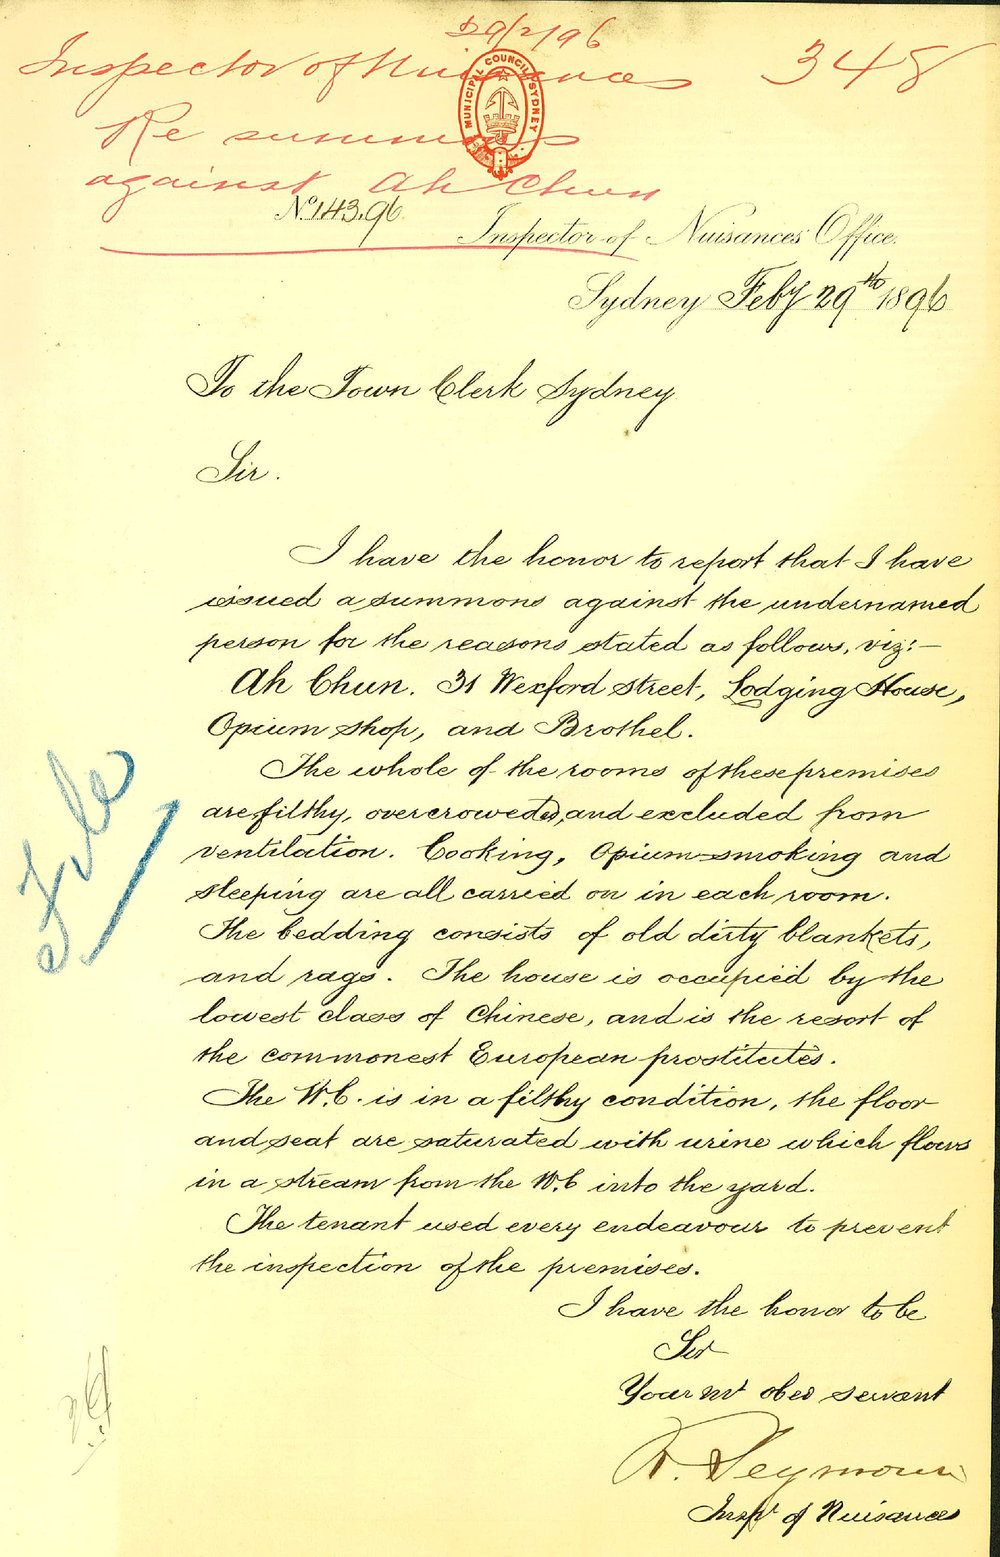 29/2/96
Inspector of Nuisances 348
MUNICIPAL COUNCIL SYDNEY
Re summons
against Ah Chun
No. 143.96.
Inspector of Nuisances Office.
Sydney Feby 29th 1896
To the Town Clerk Sydney
Sir.
I have the honor to report that I have
issued a summons against the undernamed
person for the reasons stated as follows, viz:—
Ah Chun. 31 Wexford Street, Lodging House,
Opium shop, and Brothel.
The whole of the rooms of these premises
are filthy, overcrowded, and excluded from
ventilation. Cooking, Opium-smoking and
sleeping are all carried on in each room.
The bedding consists of old dirty blankets,
and rags. The house is occupied by the
lowest class of Chinese, and is the resort of
the commonest European prostitutes.
The W.C. is in a filthy condition, the floor
and seat are saturated with urine which flows
in a stream from the W.C into the yard.
The tenant used every endeavour to prevent
the inspection of the premises.
I have the honor to be
Sir
Your mt obed servant
R. Seymour
Inspr of Nuisances
File